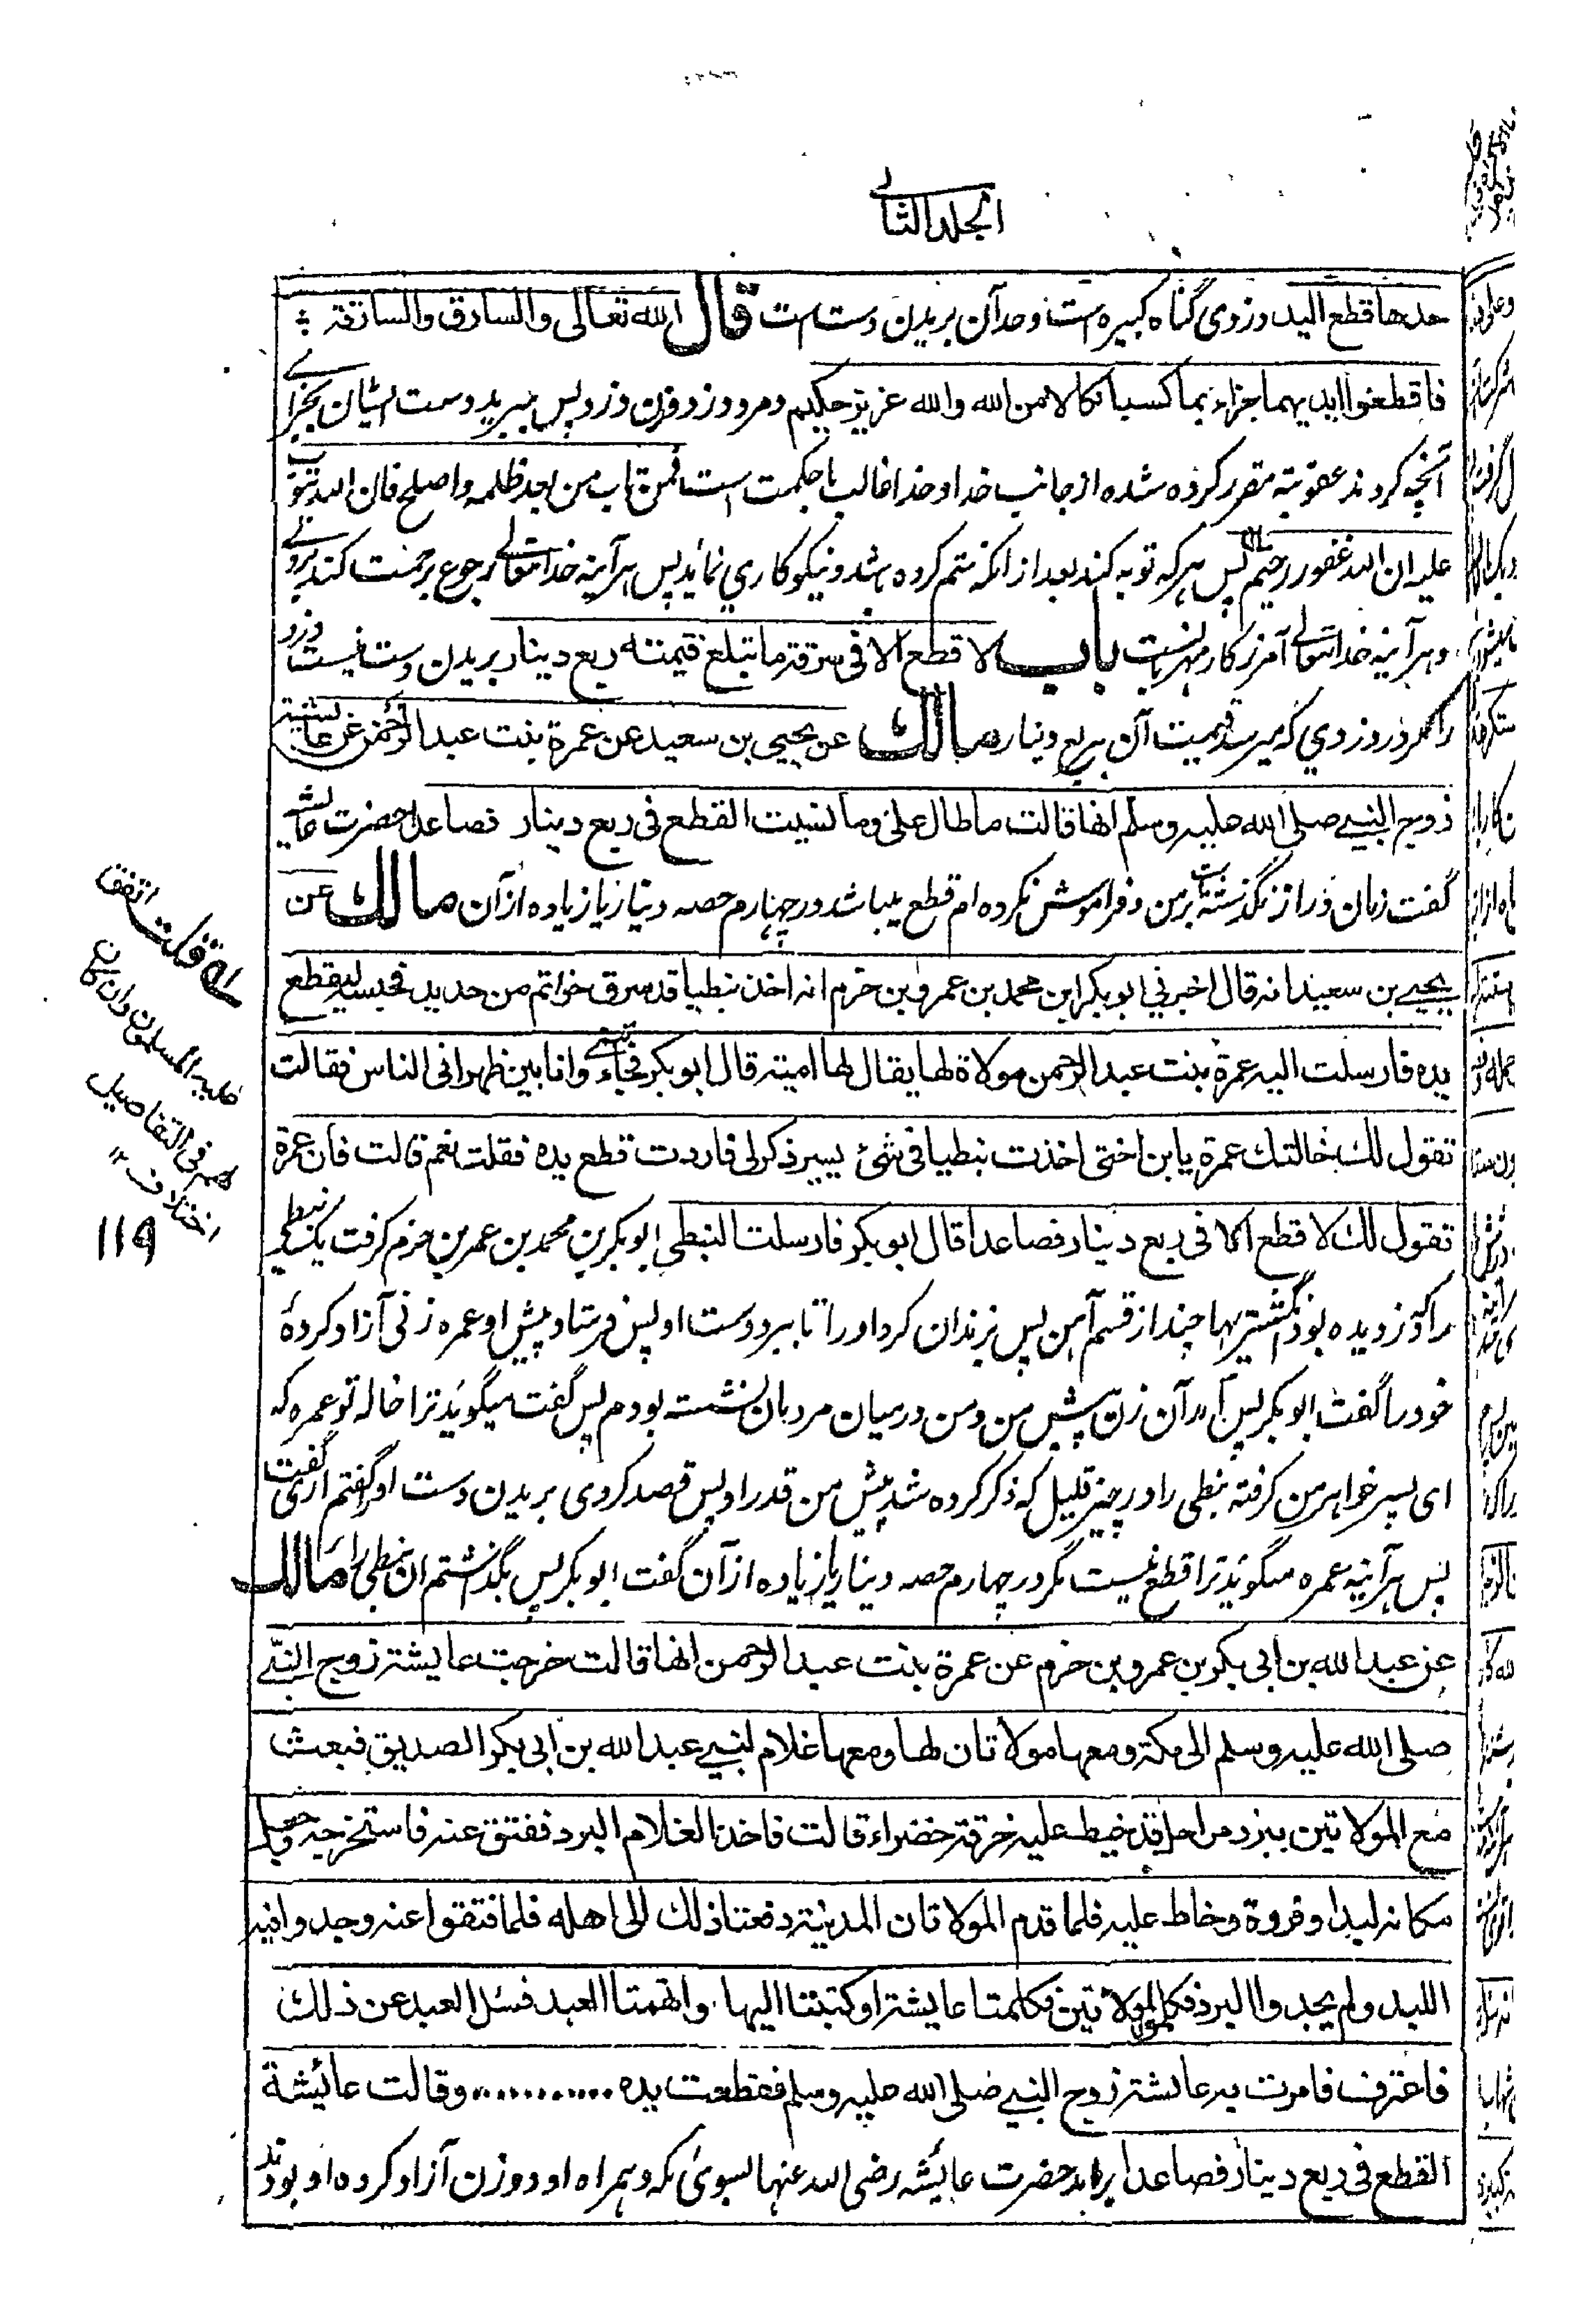 المجلد الثانی
حدها قطع الید دزدی گناه کبیره است و حد آن بریدن دست است قال الله تعالی والسارق والسارقة
فاقطعوا ایدیهما جزاء بما کسبا نکالا من الله والله عزیز حکیم و مرد دزد و زن دزد پس ببرید دست ایشان بجزای
آنچه کردند عقوبته مقرر کرده شده از جانب خدا و خدا غالب با حکمت است فمن تاب من بعد ظلمه واصلح فان الله یتوب
علیه ان الله غفور رحیم پس هر که توبه کند بعد از انکه ستم کرده باشد و نیکوکاری نماید پس هر آینه خدا تعالی رجوع برحمت کند بروی
و هر آینه خدا تعالی آمرزگار مهربانست باب لا قطع الا فی سرقة ما تبلغ قیمته ربع دینار بریدن دست نیست دزد
را مگر در دزدی که میرسد قیمت آن بربع دینار مالك عن یحیی بن سعید عن عمرة بنت عبد الرحمن عن عایشة
زوج النبی صلی الله علیه وسلم انها قالت ما طال علی وما نسیت القطع فی ربع دینار فصاعدا حضرت عایشه
گفت زمان دراز نگذشته است بر من و فراموش نکرده ام قطع یباشد در چهارم حصه دینار یا زیاده از آن مالك عن
یحیی بن سعید انه قال اخبرنی ابو بکر ابن محمد بن عمرو بن حزم انه اخذ نبطیا قد سرق خواتم من حدید فحبسه لیقطع
یده فارسلت الیه عمرة بنت عبد الرحمن مولاة لها یقال لها امیة قال ابو بکر فجاءتنی وانا بین ظهرانی الناس فقالت
تقول لك خالتك عمرة یا بن اختی اخذت نبطیا فی شئ یسیر ذکر لی فاردت قطع یده فقلت نعم قالت فان عمرة
تقول لك لا قطع الا فی ربع دینار فصاعدا قال ابو بکر فارسلت النبطی ابو بکر بن محمد بن عمر بن حزم گرفت یک نبطی
را که دزدیده بود انگشتریها چند از قسم آهن پس بزندان کرد او را تا ببرد دست او پس فرستاد پیش او عمره زنی آزاد کردهٔ
خود را گفت ابو بکر پس آمد آن زن پیش من و من درمیان مردمان نشسته بودم پس گفت میگوید ترا خاله تو عمره که
ای پسر خواهر من گرفته نبطی را در چیز قلیل که ذکر کرده شد پیش من قدر او پس قصد کردی بریدن دست او را گفتم اری گفت
پس هر آینه عمره میگوید ترا قطع نیست مگر در چهارم حصه دینار یا زیاده از آن گفت ابو بکر پس بگذاشتم ان نبطی را مالك
عن عبد الله بن ابی بکر بن عمرو بن حزم عن عمرة بنت عبد الرحمن انها قالت خرجت عایشة زوج النبی
صلی الله علیه وسلم الی مکة ومعها مولاتان لها ومعها غلام لبنی عبد الله بن ابی بکر الصدیق فبعث
مع المولاتین ببرد مراجل قد خیط علیه خرقة خضراء قالت فاخذ الغلام البرد ففتق عنه فاستخرجه وجعل
مکانه لبدا او فروة وخاط علیه فلما قدم المولاتان المدینة دفعتا ذلك الی اهله فلما فتقوا عنه وجدوا فیه
اللبد ولم یجدوا البرد فکلموا المولاتین فکلمتا عایشة او کتبتا الیها واتهمتا العبد فسئل العبد عن ذلك
فاعترف فامرت به عایشة زوج النبی صلی الله علیه وسلم فقطعت یده ........... وقالت عائیشة
القطع فی ربع دینار فصاعدا برامد حضرت عایشه رضی الله عنها بسوی مکه و همراه او دو زن آزاد کرده او بودند
له قلت اتفق
علیه المسلمون وان کان
لهم فی التفاصیل
اختلاف ۱۲
۱۱۹